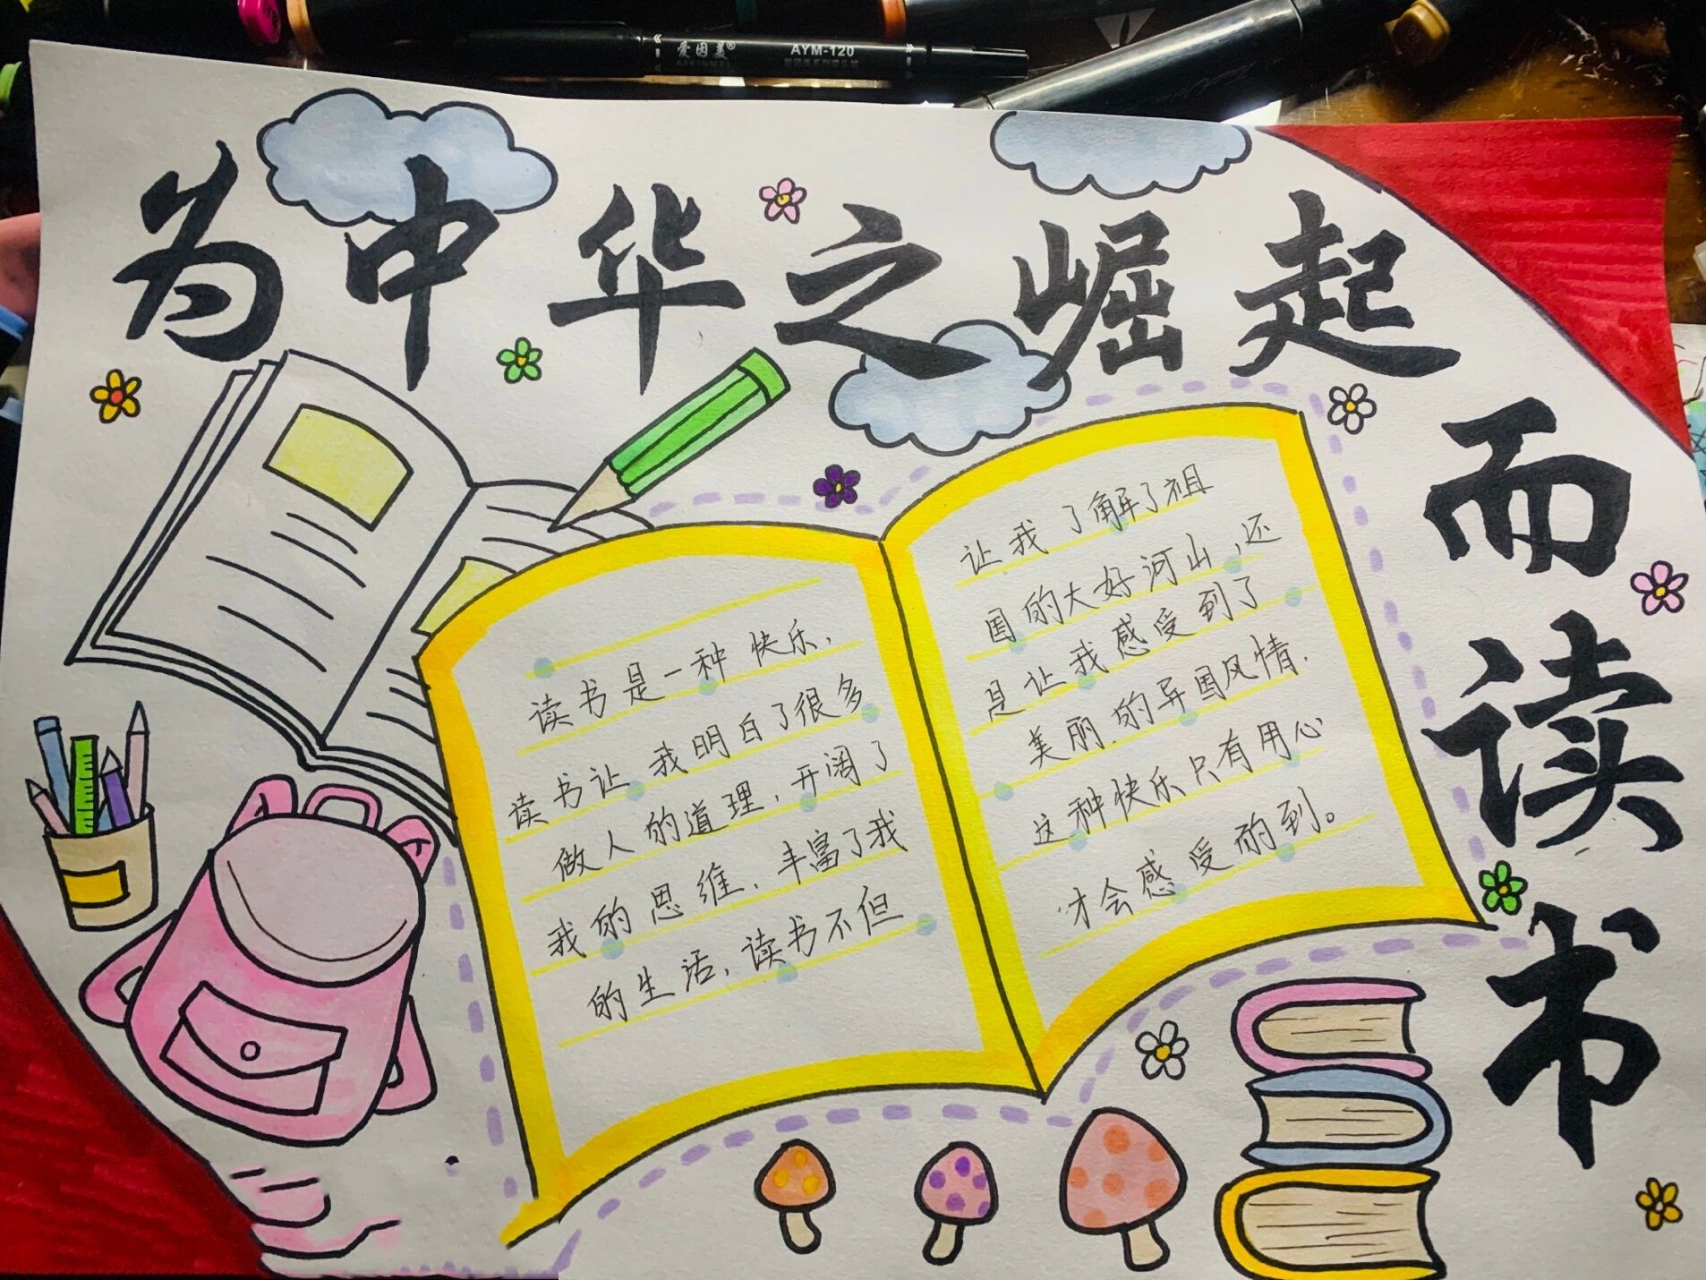 爱因美®
AYM-120
AIYINMEI
为中华之崛起
而读书
读书是一种快乐，
读书让我明白了很多
做人的道理，开阔了
我的思维，丰富了我
的生活，读书不但
让我了解了祖
国的大好河山，还
是让我感受到了
美丽的异国风情.
这种快乐只有用心
才会感受的到。